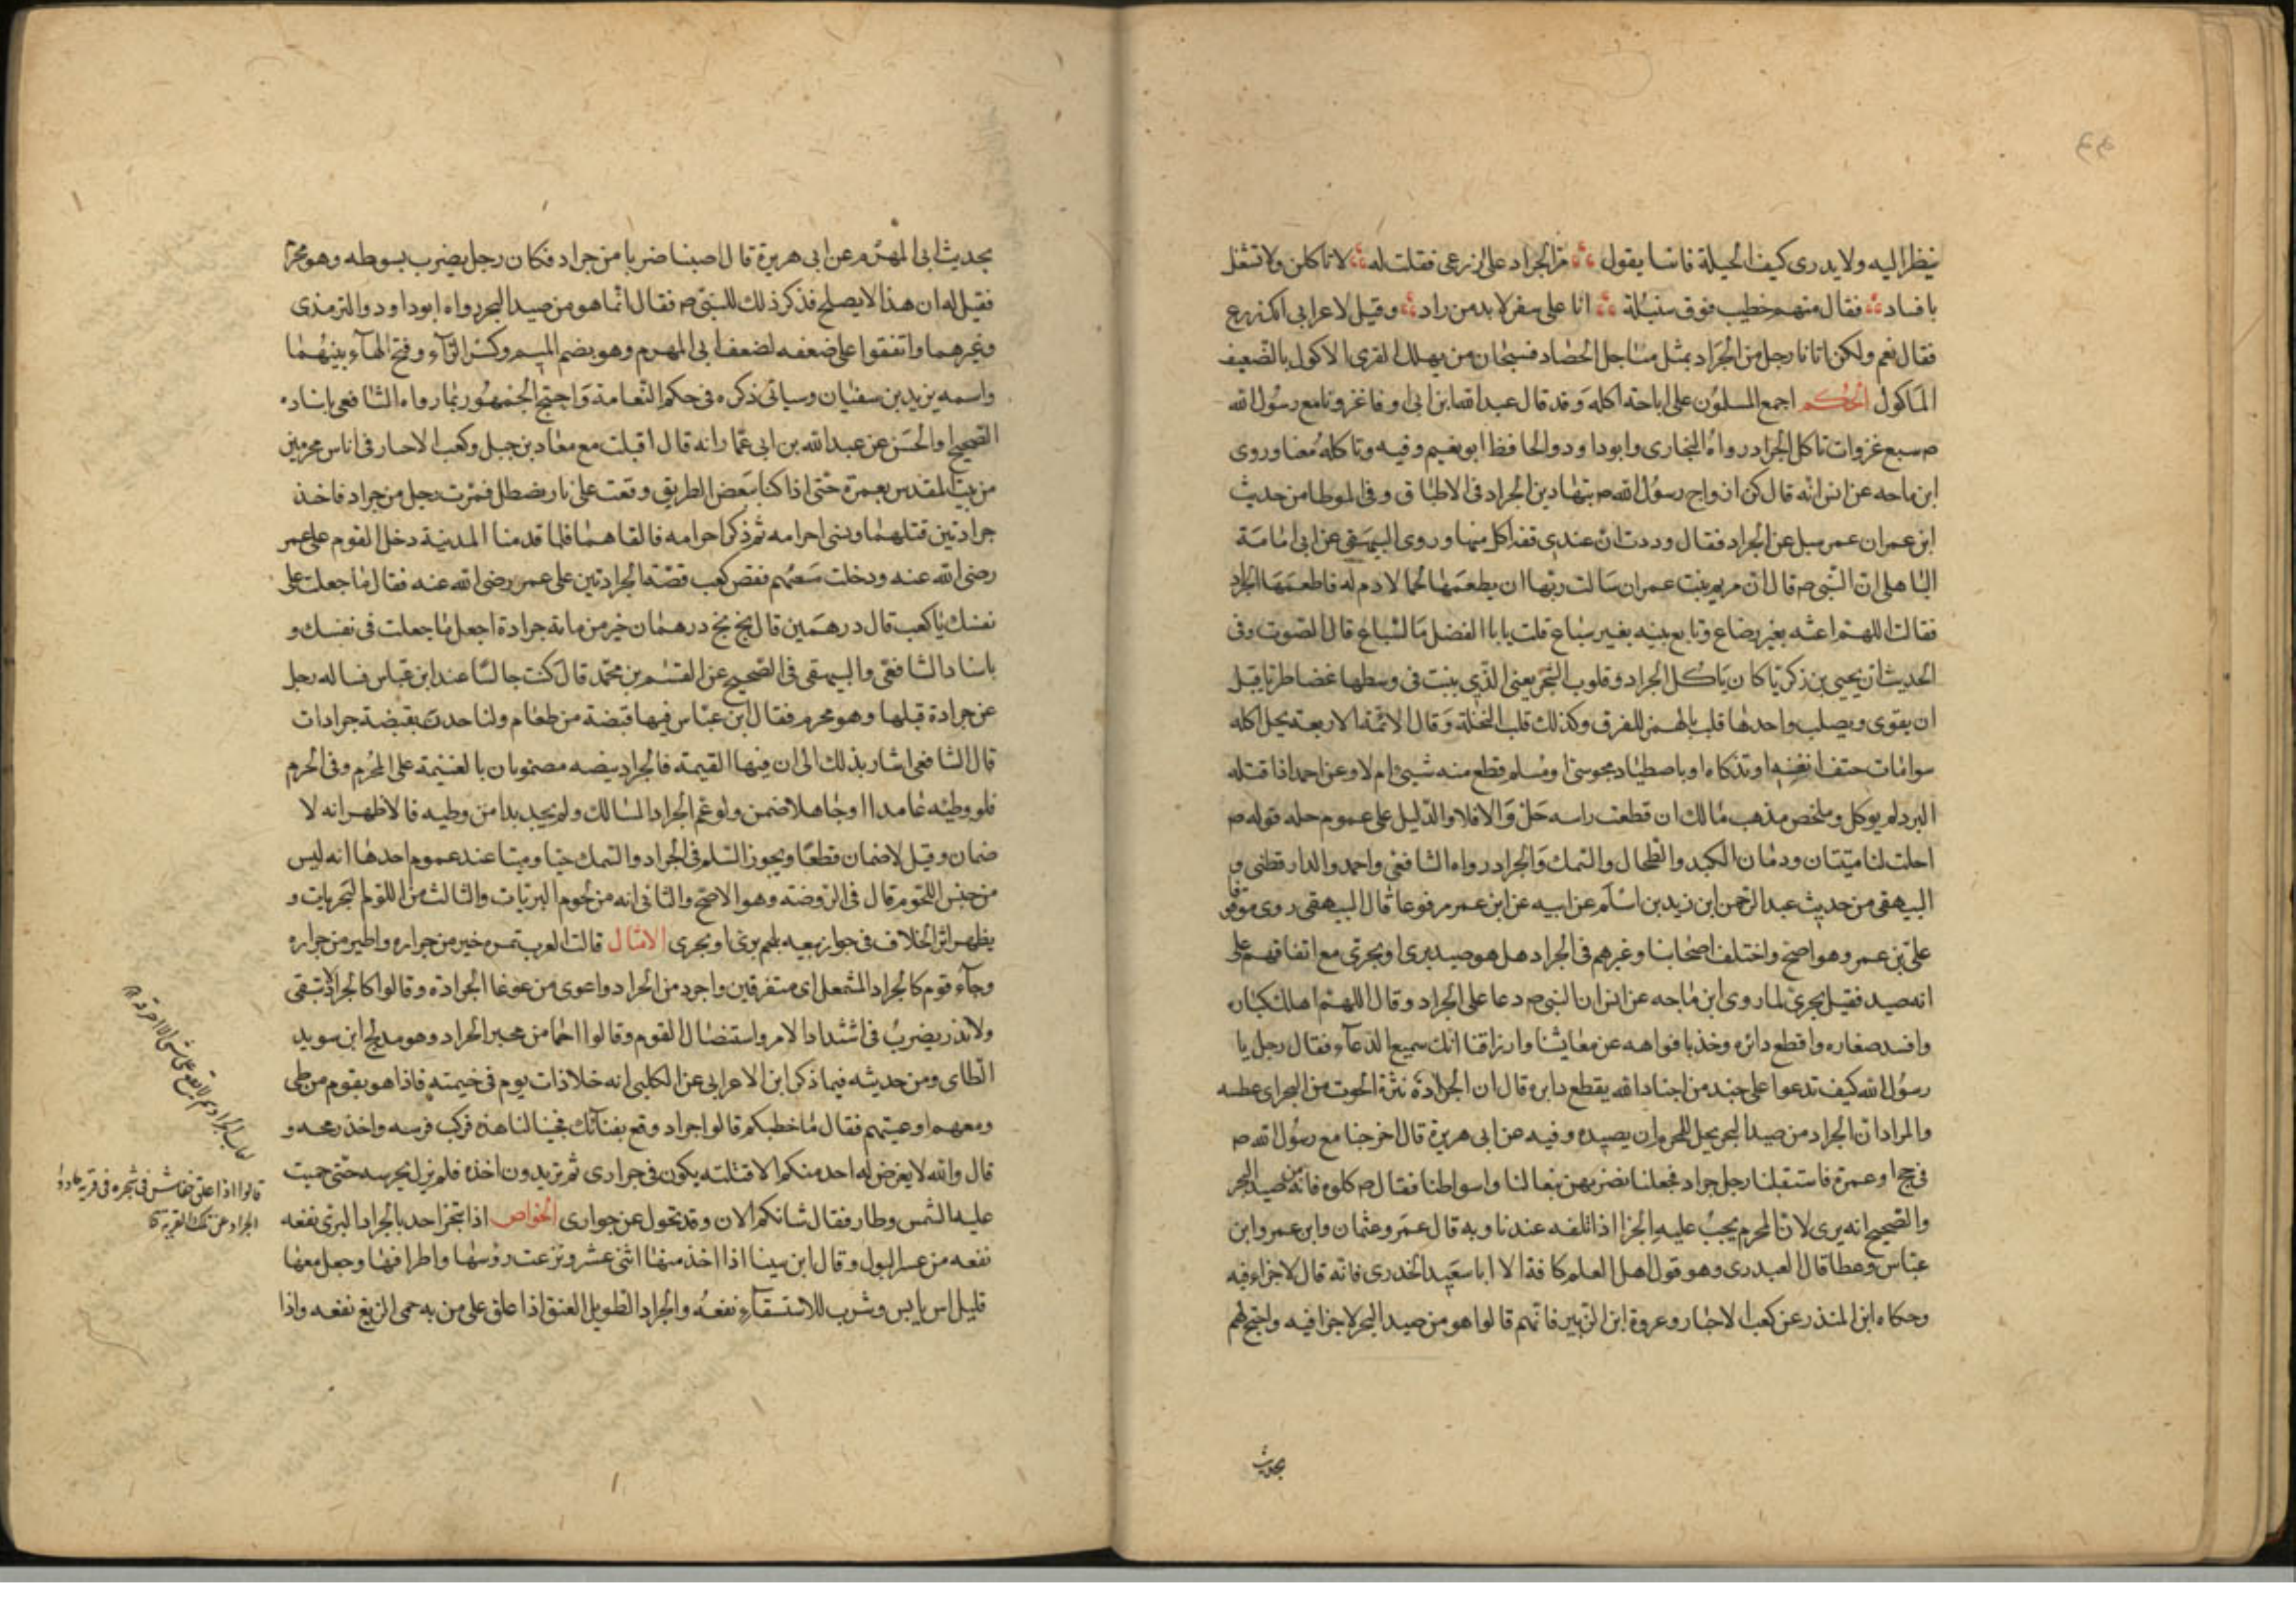 ينظر اليه ولا يدرى كيف الحيلة فانشا يقول مر الجراد على زرعى فقلت له لا تاكلن ولا تشغل
بافساد فقال منهم خطيب فوق سنبلة انا على سفر لابد من زاد وقيل لاعرابى الك زرع
فقال نعم ولكن اتانا رجل من الجراد بمثل مناجل الحصاد فسبحان من يهلك القوى الاكول بالضعيف
الماكول الحكم اجمع المسلمون على اباحة اكله وقد قال عبد الله ابن ابى اوفا غزونا مع رسول الله
صم سبع غزوات ناكل الجراد رواه البخارى وابو داود والحافظ ابو نعيم وفيه وناكله معنا وروى
ابن ماجه عن انس انه قال كن ازواج رسول الله صم يتهادين الجراد فى الاطباق وفى الموطا من حديث
ابن عمر ان عمر سيل عن الجراد فقال وددت ان عندى قفه اكل منها وروى البيهقى عن ابى امامة
الباهلى ان النبى صم قال ان مريم بنت عمران سالت ربها ان يطعمها لحما لا دم له فاطعمها الجراد
فقالت اللهم اعشه بغير رضاع وتابع بينه بغير شياع قلت يا ابا الفضل ما الشياع قال الصوت وفى
الحديث ان يحيى بن زكريا كان ياكل الجراد وقلوب الشجر يعنى الذى ينبت فى وسطها غضا طريا قبل
ان يقوى ويصلب واحدها قلب بالضم للفرق وكذلك قلب النخلة وقال الائمة الاربعة يحل اكله
سوا مات حتف انفه او بذكاه او باصطياد مجوسى او مسلم قطع منه شيئ ام لا وعن احمد اذا قتله
البرد لم يوكل وملخص مذهب مالك ان قطعت راسه حل والا فلا والدليل على عموم حله قوله صم
احلت لنا ميتتان ودمان الكبد والطحال والسمك والجراد رواه الشافعى واحمد والدارقطنى و
البيهقى من حديث عبد الرحمن ابن زيد بن اسلم عن ابيه عن ابن عمر مرفوعا قال البيهقى روى موقوفا
على بن عمر وهو اصح واختلف اصحابنا وغيرهم فى الجراد هل هو صيد برى او بحرى مع اتفاقهم على
انه صيد فقيل بحرى لما روى ابن ماجه عن انس ان النبى صم دعا على الجراد وقال اللهم اهلك كباره
وافسد صغاره واقطع دابره وخذ بافواهه عن معايشنا وارزاقنا انك سميع الدعآء فقال رجل يا
رسول الله كيف تدعوا على جند من اجناد الله بقطع دابره قال ان الجرادة نثرة الحوت من البحر اى عطسه
والمراد ان الجراد من صيد البحر يحل للمحرم ان يصيده وفيه عن ابى هريرة قال خرجنا مع رسول الله صم
فى حج او عمرة فاستقبلنا رجل جراد فجعلنا نضربهن بنعالنا واسواطنا فقال صم كلوه فانه من صيد البحر
والصحيح انه برى لان المحرم يجب عليه الجزا اذا اتلفه عندنا وبه قال عمر وعثمان وابن عمر وابن
عباس وعطا قال العبدرى وهو قول اهل العلم كافة الا ابا سعيد الخدرى فانه قال لا جزاء فيه
وحكاه ابن المنذر عن كعب الاحبار وعروة ابن الزبير فانهم قالوا هو من صيد البحر لا جزا فيه واحتج لهم
بحديث
بحديث ابى المهزم عن ابى هريرة قال اصبنا ضربا من جراد فكان رجل يضرب بسوطه وهو محرم
فقيل له ان هذا لا يصلح فذكر ذلك للنبى صم فقال انما هو من صيد البحر رواه ابو داود والترمذى
وغيرهما واتفقوا على ضعفه لضعف ابى المهزم وهو بضم الميم وكسر الزآء وفتح الهآء بينهما
واسمه يزيد بن سفيان وسياتى ذكره فى حكم النعامة واحتج الجمهور بما رواه الشافعى باسناده
الصحيح او الحسن عن عبد الله بن ابى عمار انه قال اقبلت مع معاذ بن جبل وكعب الاحبار فى اناس محرمين
من بيت المقدس بعمرة حتى اذا كنا ببعض الطريق وقعت على نار يصطلى فمرت رجل من جراد فاخذ
جرادتين قتلهما ونسى احرامه ثم ذكر احرامه فالقاهما فلما قدمنا المدينة دخل القوم على عمر
رضى الله عنه ودخلت معهم فقص كعب قصة الجرادتين على عمر رضى الله عنه فقال ما جعلت على
نفسك يا كعب قال درهمين قال بخ بخ درهمان خير من مائة جرادة اجعل ما جعلت فى نفسك و
باسناد الشافعى والبيهقى فى الصحيح عن القسم بن محمد قال كنت جالسا عند ابن عباس فساله رجل
عن جرادة قتلها وهو محرم فقال ابن عباس فيها قبضة من طعام ولناخذن بقبضة جرادات
قال الشافعى اشار بذلك الى ان فيها القيمة فالجراد بيضه مضمونان بالغنيمة على المحرم وفى الحرم
فلو وطئه عامدا او جاهلا ضمن ولو عم الجراد المسالك ولم يجد بدا من وطيه فالاظهر انه لا
ضمان وقيل لا ضمان قطعا ويجوز السلم فى الجراد والسمك حيا وميتا عند عموم احدها انه ليس
من جنس اللحوم قال فى الروضة وهو الاصح والثانى انه من لحوم البريات والثالث من اللحوم البحريات و
يظهر اثر الخلاف فى جواز بيعه بلحم برى او بحرى الامثال قالت العرب تمره خير من جراره واطير من جراره
وجآء قوم كالجراد المشعل اى متفرقين واجرد من الجراد واغوى من غوغا الجرادة وقالوا كالجراد لا تبقى
ولا تذر يضرب فى اشتداد الامر واستئصال القوم وقالوا احما من مجير الجراد وهو مدلج ابن سويد
الطاى ومن حديثه فيما ذكر ابن الاعرابى عن الكلبى انه خلا ذات يوم فى خيمته فاذا هو بقوم من طى
ومعهم اوعيتهم فقال ما خطبكم قالوا جراد وقع بفنآئك فجئنا لناخذه فركب فرسه واخذ رمحه و
قال والله لا يعرض له احد منكم الا قتلته يكون فى جوارى ثم تريدون اخذه فلم يزل يحرسه حتى حميت
عليه الشمس وطار فقال شانكم الان وقد تحول عن جوارى الخواص اذا تبخر احد بالجراد البرى نفعه
نفعه من عسر البول وقال ابن سينا اذا اخذ منها اثنى عشر ونزعت رؤسها واطرافها وجعل معها
قليل اس يابس وشرب للاستسقآء نفعه والجراد الطويل العنق اذا علق على من به حمى الربع نفعه واذا
لعاب الجراد سم لا يقع على شى الا احرقه
قالوا اذا علق خفاش فى شجره فى قرية
الجراد عن تلك القرية